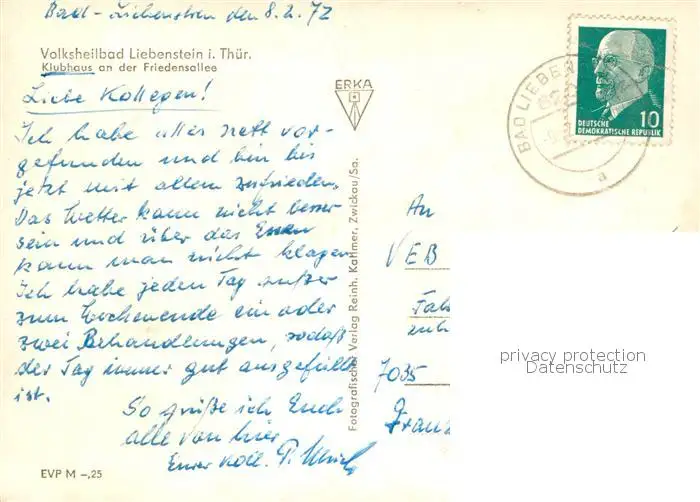 Bad-Liebenstein den 8.2.72
Volksheilbad Liebenstein i. Thür.
Klubhaus an der Friedensallee
Liebe Kollegen!
Ich habe alles nett vor-
gefunden und bin bis
jetzt mit allem zufrieden.
Das Wetter kann nicht besser
sein und über das Essen
kann man nicht klagen.
Ich habe jeden Tag außer
zum Wochenende ein oder
zwei Behandlungen, sodaß
der Tag immer gut ausgefüllt
ist.
So grüße ich Euch
alle von hier
Euer Koll. P. Ulrich
EVP M –,25
ERKA
Fotografischer Verlag Reinh. Kallmer, Zwickau/Sa.
BAD LIEBEN
a
10
DEUTSCHE
DEMOKRATISCHE REPUBLIK
An
VEB
7035
Franz
privacy protection
Datenschutz